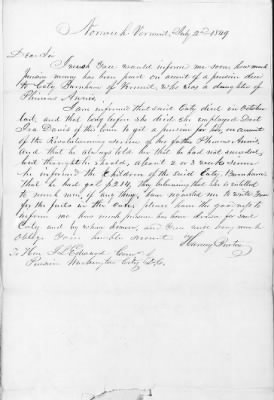 Norwich Vermont, July 2d 1849
Dear Sir
I wish you would inform me soon how much
pension money has been paid on account of a pension due
to Caty Burnham of Vermont, who was a daughter of
Phineas Annis,
I am informed that said Caty died in October
last, and that long before she died she employed Doct
Ira Davis of this town to get a pension for her, on account
of the Revolutionary services of her father Phineas Annis,
And that he always told her that he had not succeeded
but thought he should, about 2 or 3 weeks since
he informed the children of the said Caty Burnham
that he had got $214, they believing that he is entitled
to much more, if any thing, have requested me to write you
for the facts in the case, please have the goodness to
inform me how much pension has been drawn for said
Caty and by whom drawn, and you will very much
oblige your humble servant
To Hon J L Edwards Com of
Pensions Washington City D.C.